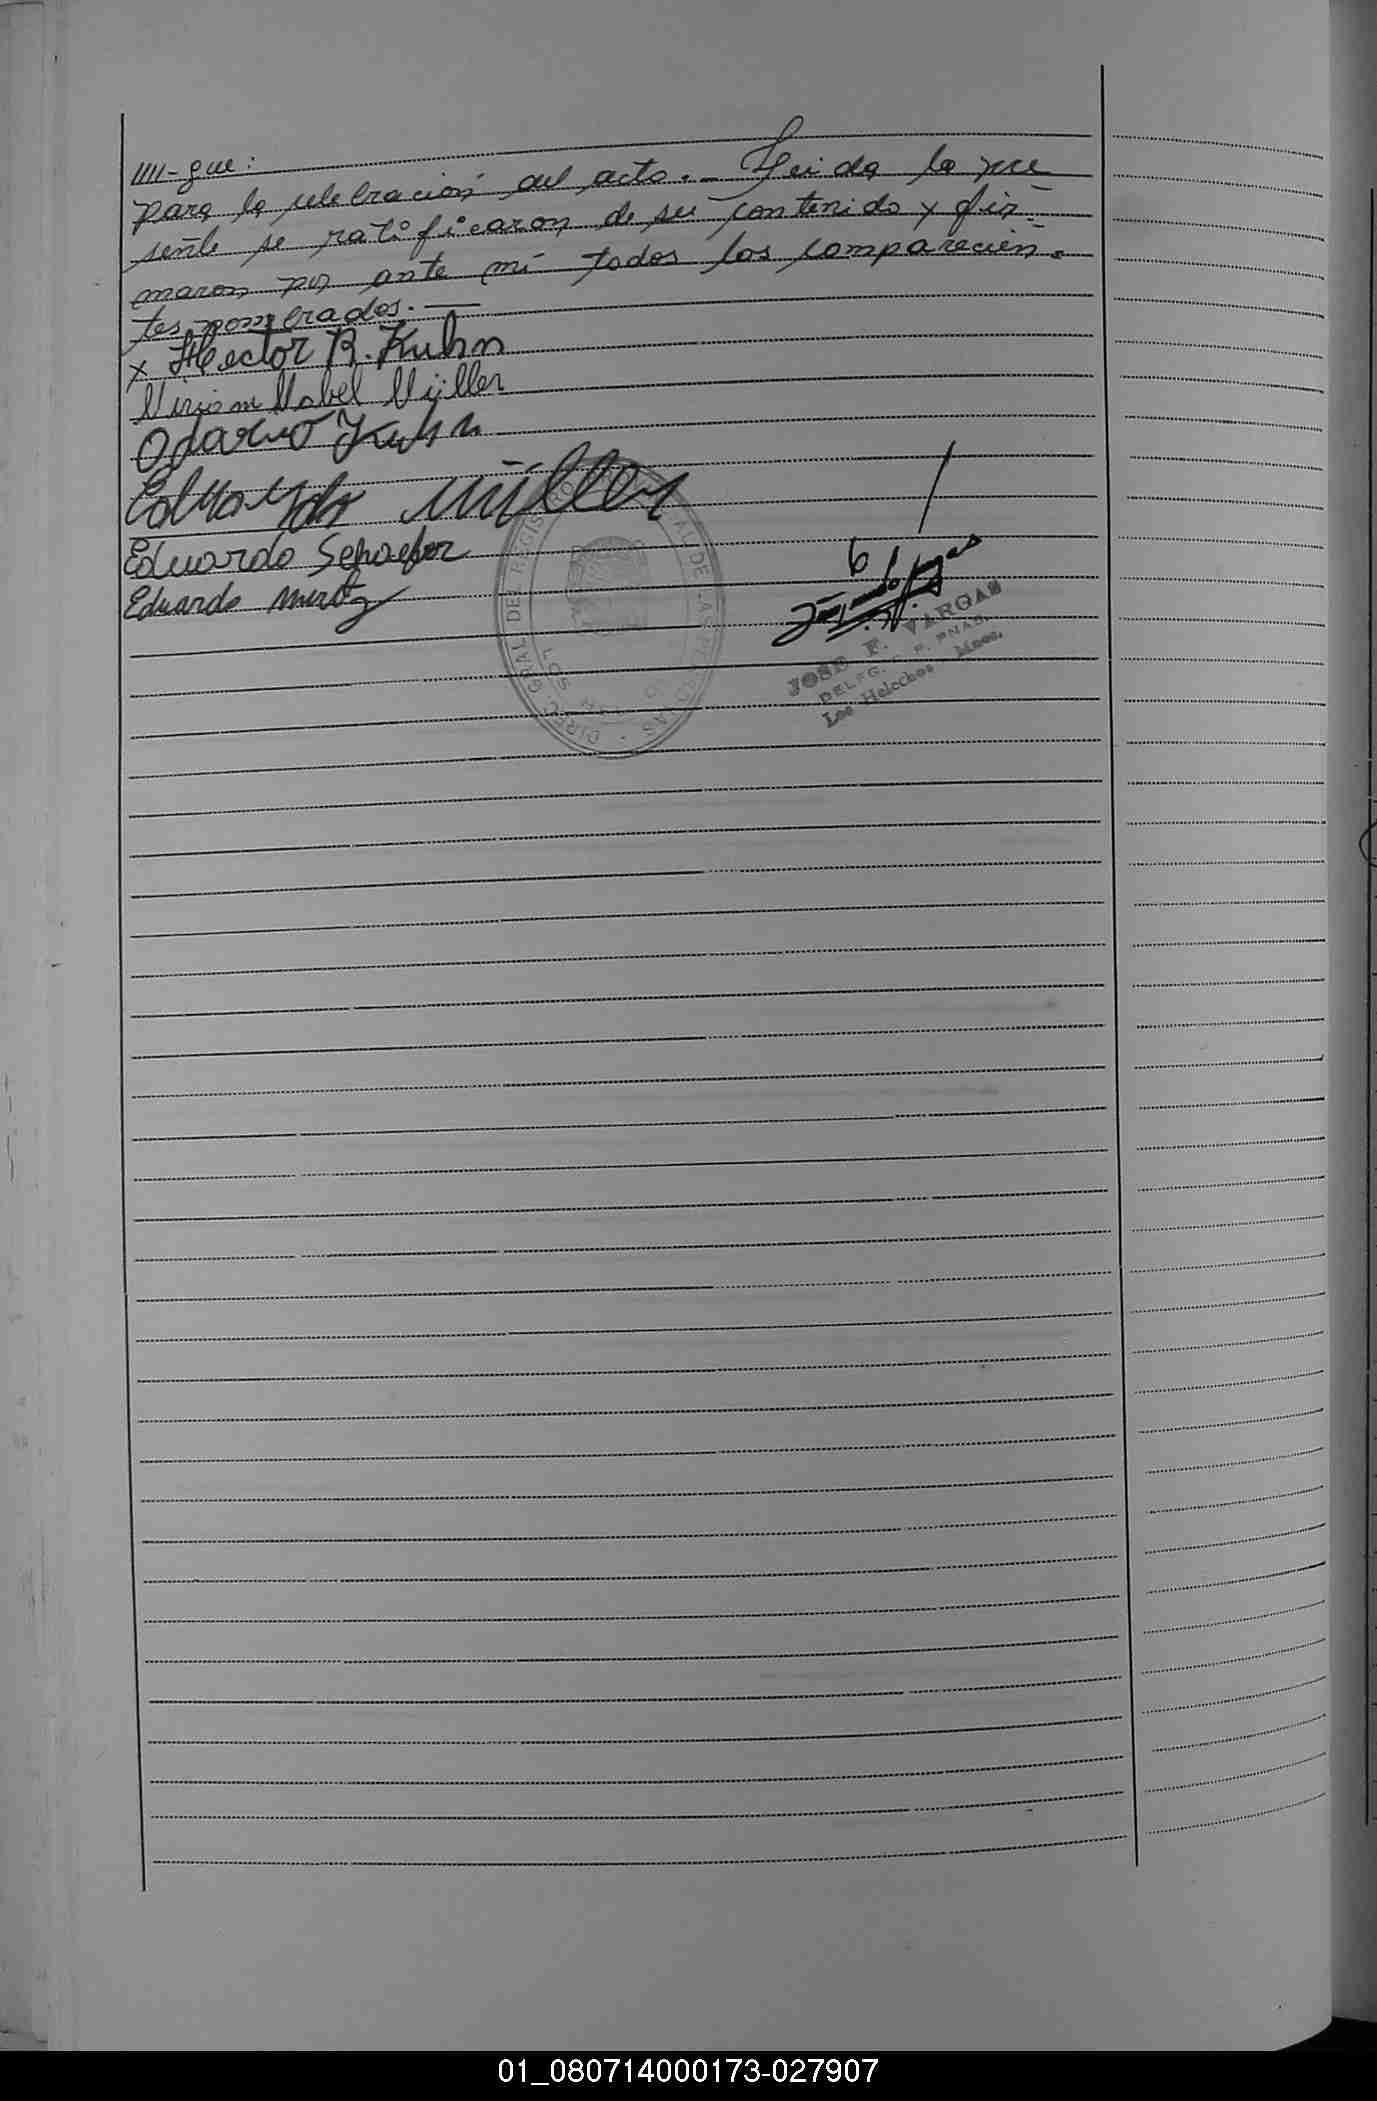 ////-gue:
para la celebracion del acto.- Leida la pre
sente se ratificaron de su contenido y fir-
maron por ante mi todos los comparecien-
tes nombrados.-
x Hector R. Kuhn
Miriam Mabel Müller
Otavio Kuhn
Eduardo Müller
Eduardo Schaefer
Eduardo
DIREC. GRAL DEL REGISTRO AL DE LAS PERSONAS
LOS
JOSE F. VARGAS
DELEG. R. P. PNAS.
Los Helechos Mnes.
01_080714000173-027907